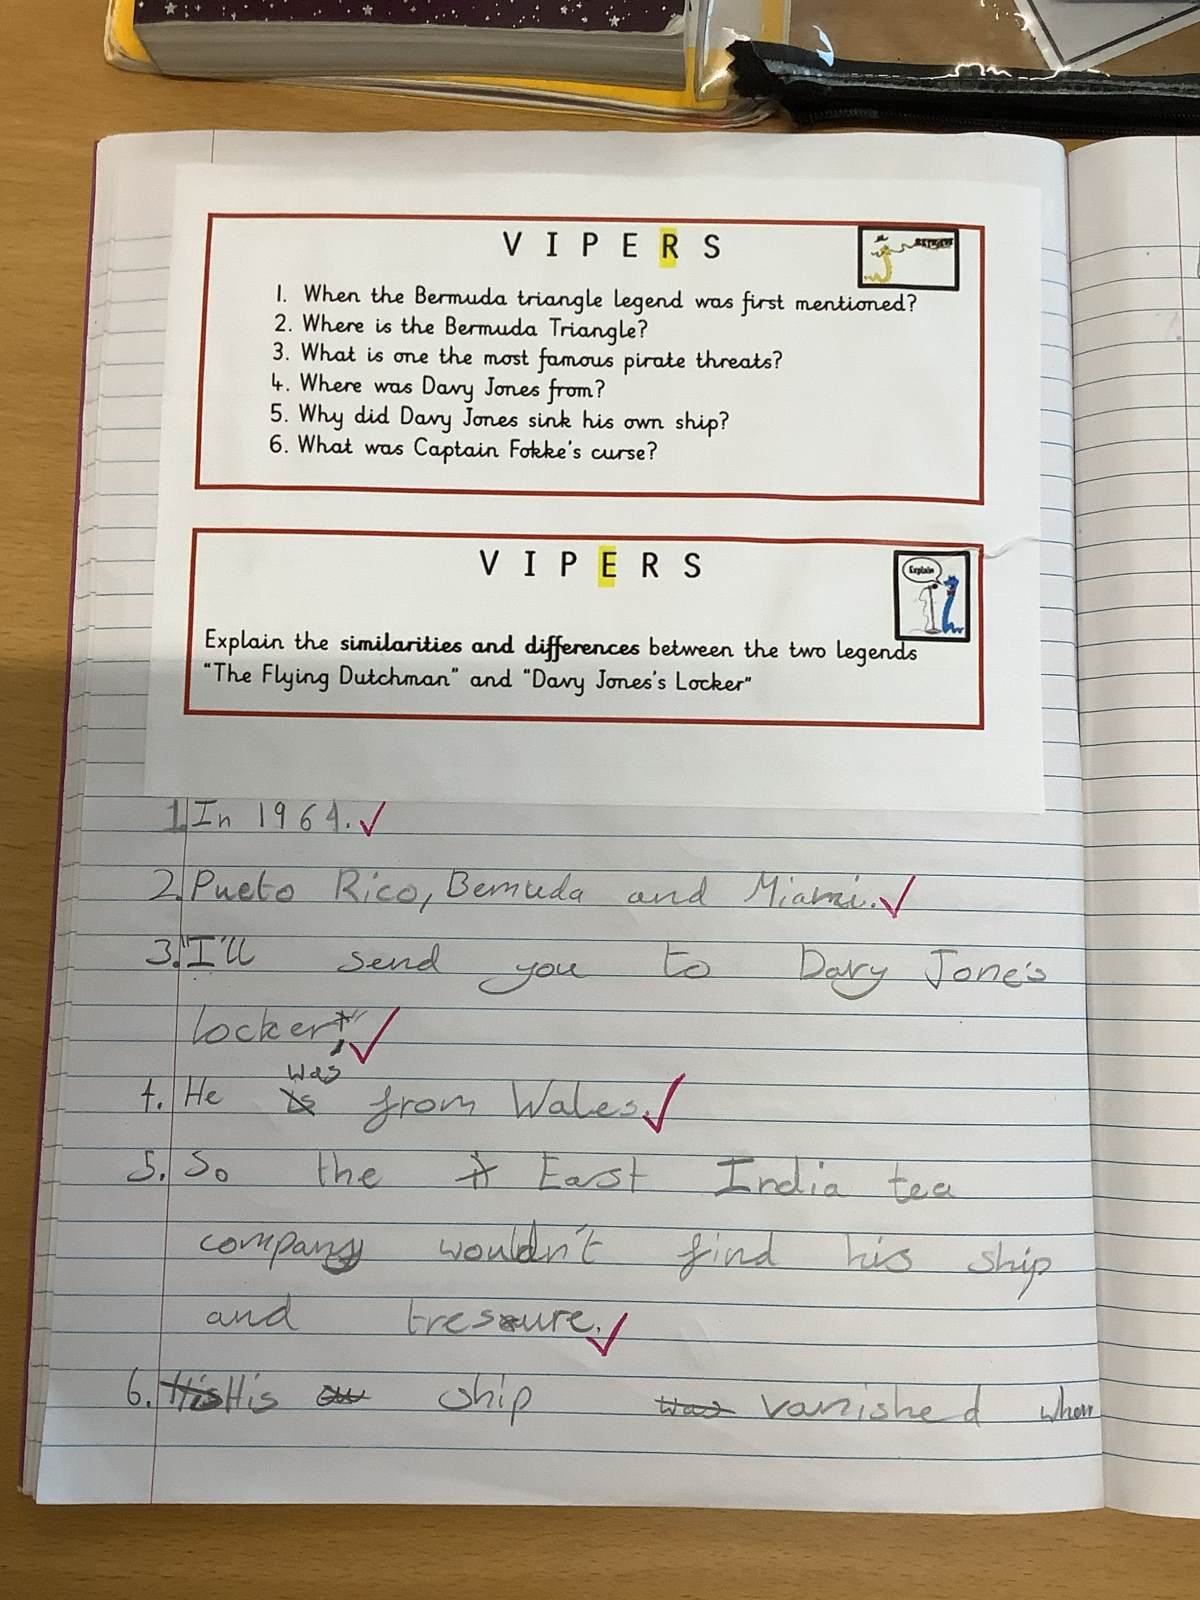 V I P E R S
RETRIEVE
1. When the Bermuda triangle legend was first mentioned?
2. Where is the Bermuda Triangle?
3. What is one the most famous pirate threats?
4. Where was Davy Jones from?
5. Why did Davy Jones sink his own ship?
6. What was Captain Fokke's curse?
V I P E R S
Explain
Explain the similarities and differences between the two legends
"The Flying Dutchman" and "Davy Jones's Locker"
1. In 1964.
2. Pueto Rico, Bemuda and Miami.
3. "I'll send you to Davy Jone's
locker"
was
4. He is from Wales.
5. So the East India tea
company wouldn't find his ship
and tresure.
6. His His ship was vanished when